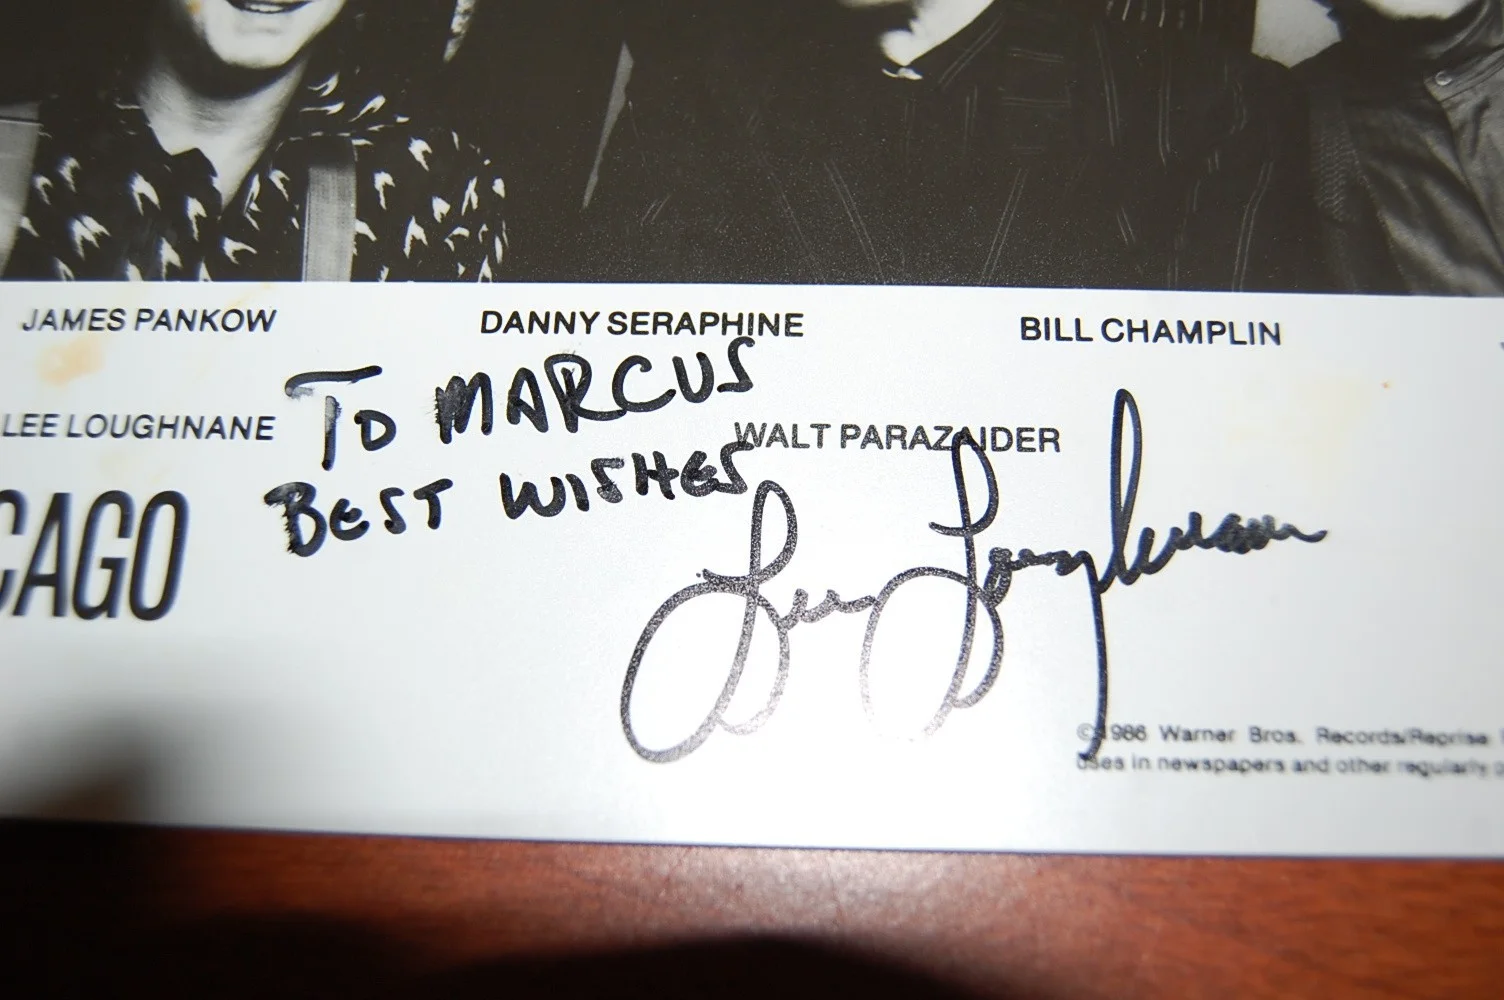 JAMES PANKOW DANNY SERAPHINE BILL CHAMPLIN
TO MARCUS
LEE LOUGHNANE WALT PARAZAIDER
BEST WISHES
CAGO
Lee Loughnane
©1986 Warner Bros. Records/Reprise
uses in newspapers and other regularly